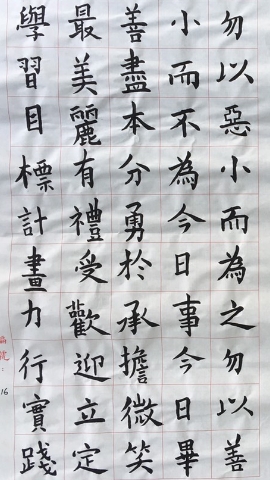 勿以惡小而為之勿以善
小而不為今日事今日畢
善盡本分勇於承擔微笑
最美麗有禮受歡迎立定
學習目標計畫力行實踐
編號:16